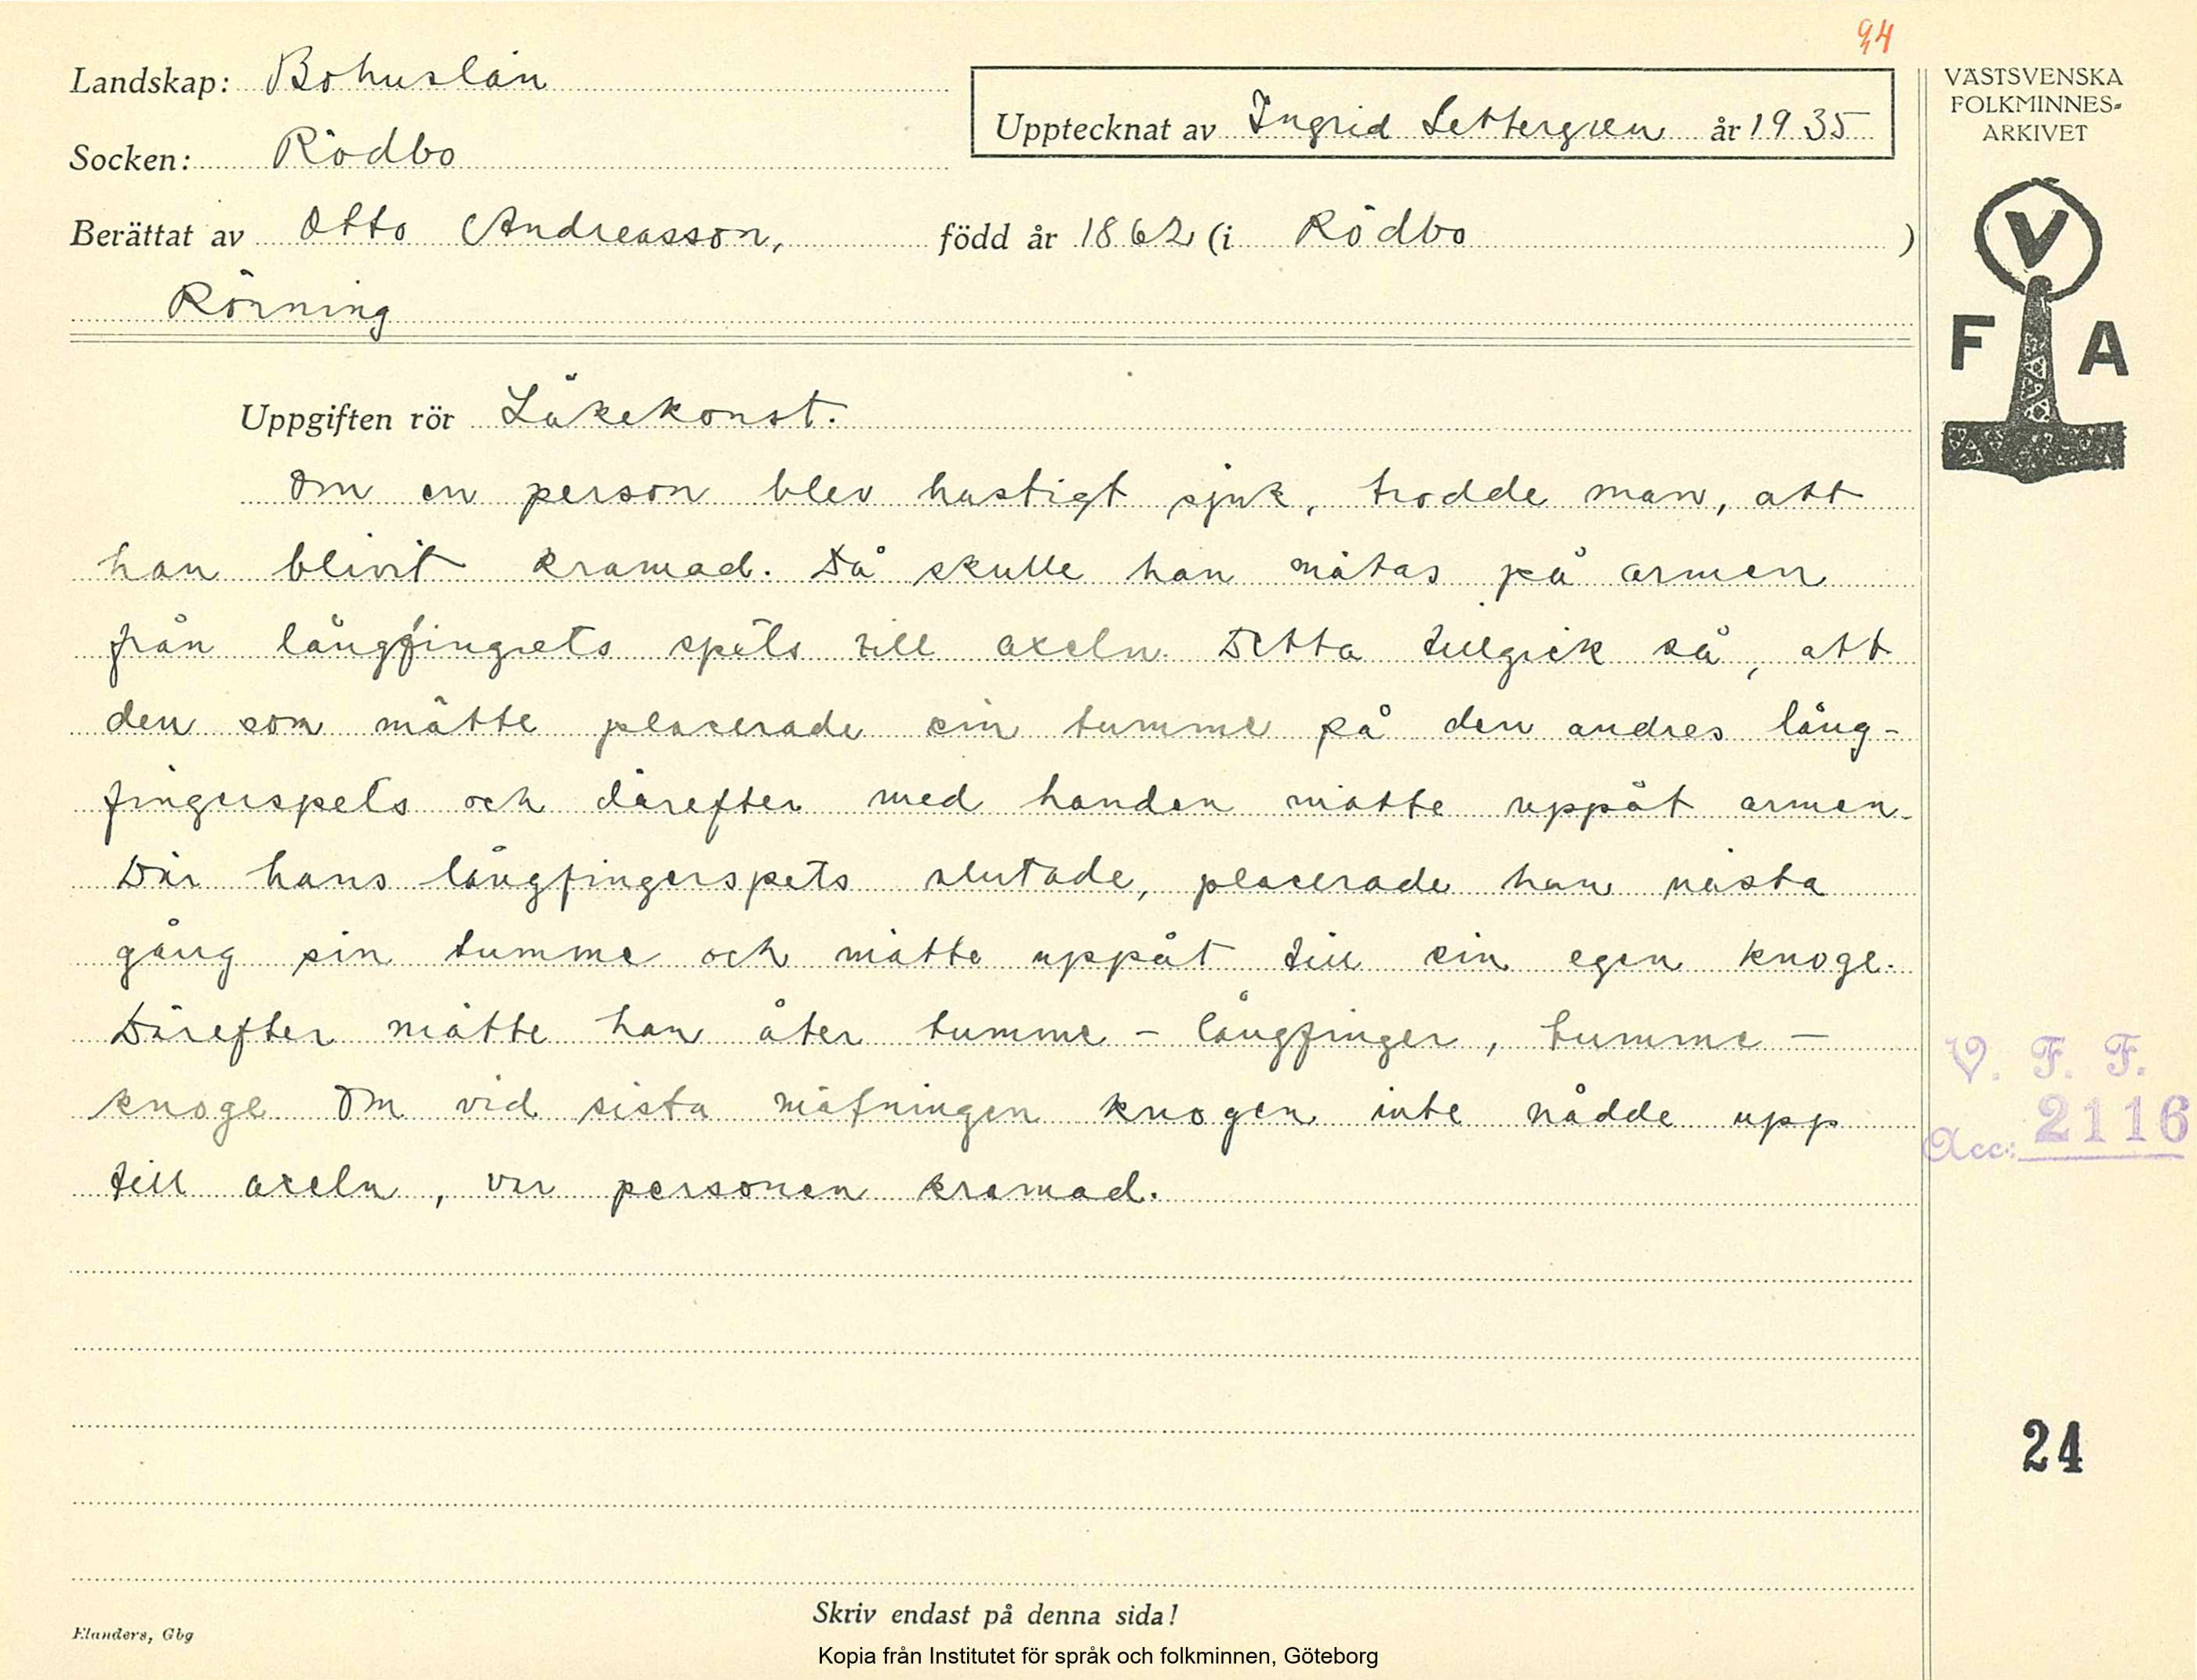 94
Landskap: Bohuslän
Socken: Rödbo
Upptecknat av Ingrid Settergren år 1935
Berättat av Otto Andreasson, född år 1862 (i Rödbo )
Rörning
VÄSTSVENSKA
FOLKMINNES-
ARKIVET
V
F A
Uppgiften rör Läkekonst.
Om en person blev hastigt sjuk, trodde man, att
han blivit kramad. Då skulle han mätas på armen
från långfingrets spets till axeln. Detta tillgick så, att
den som mätte placerade sin tumme på den andres lång-
fingerspets och därefter med handen mätte uppåt armen.
Där hans långfingerspets slutade, placerade han nästa
gång sin tumme och mätte uppåt till sin egen knoge.
Därefter mätte han åter tumme - långfinger, tumme -
knoge Om vid sista mätningen knogen inte nådde upp
till axeln, var personen kramad.
V. F. F.
Acc: 2116
24
Skriv endast på denna sida!
Elanders, Gbg
Kopia från Institutet för språk och folkminnen, Göteborg